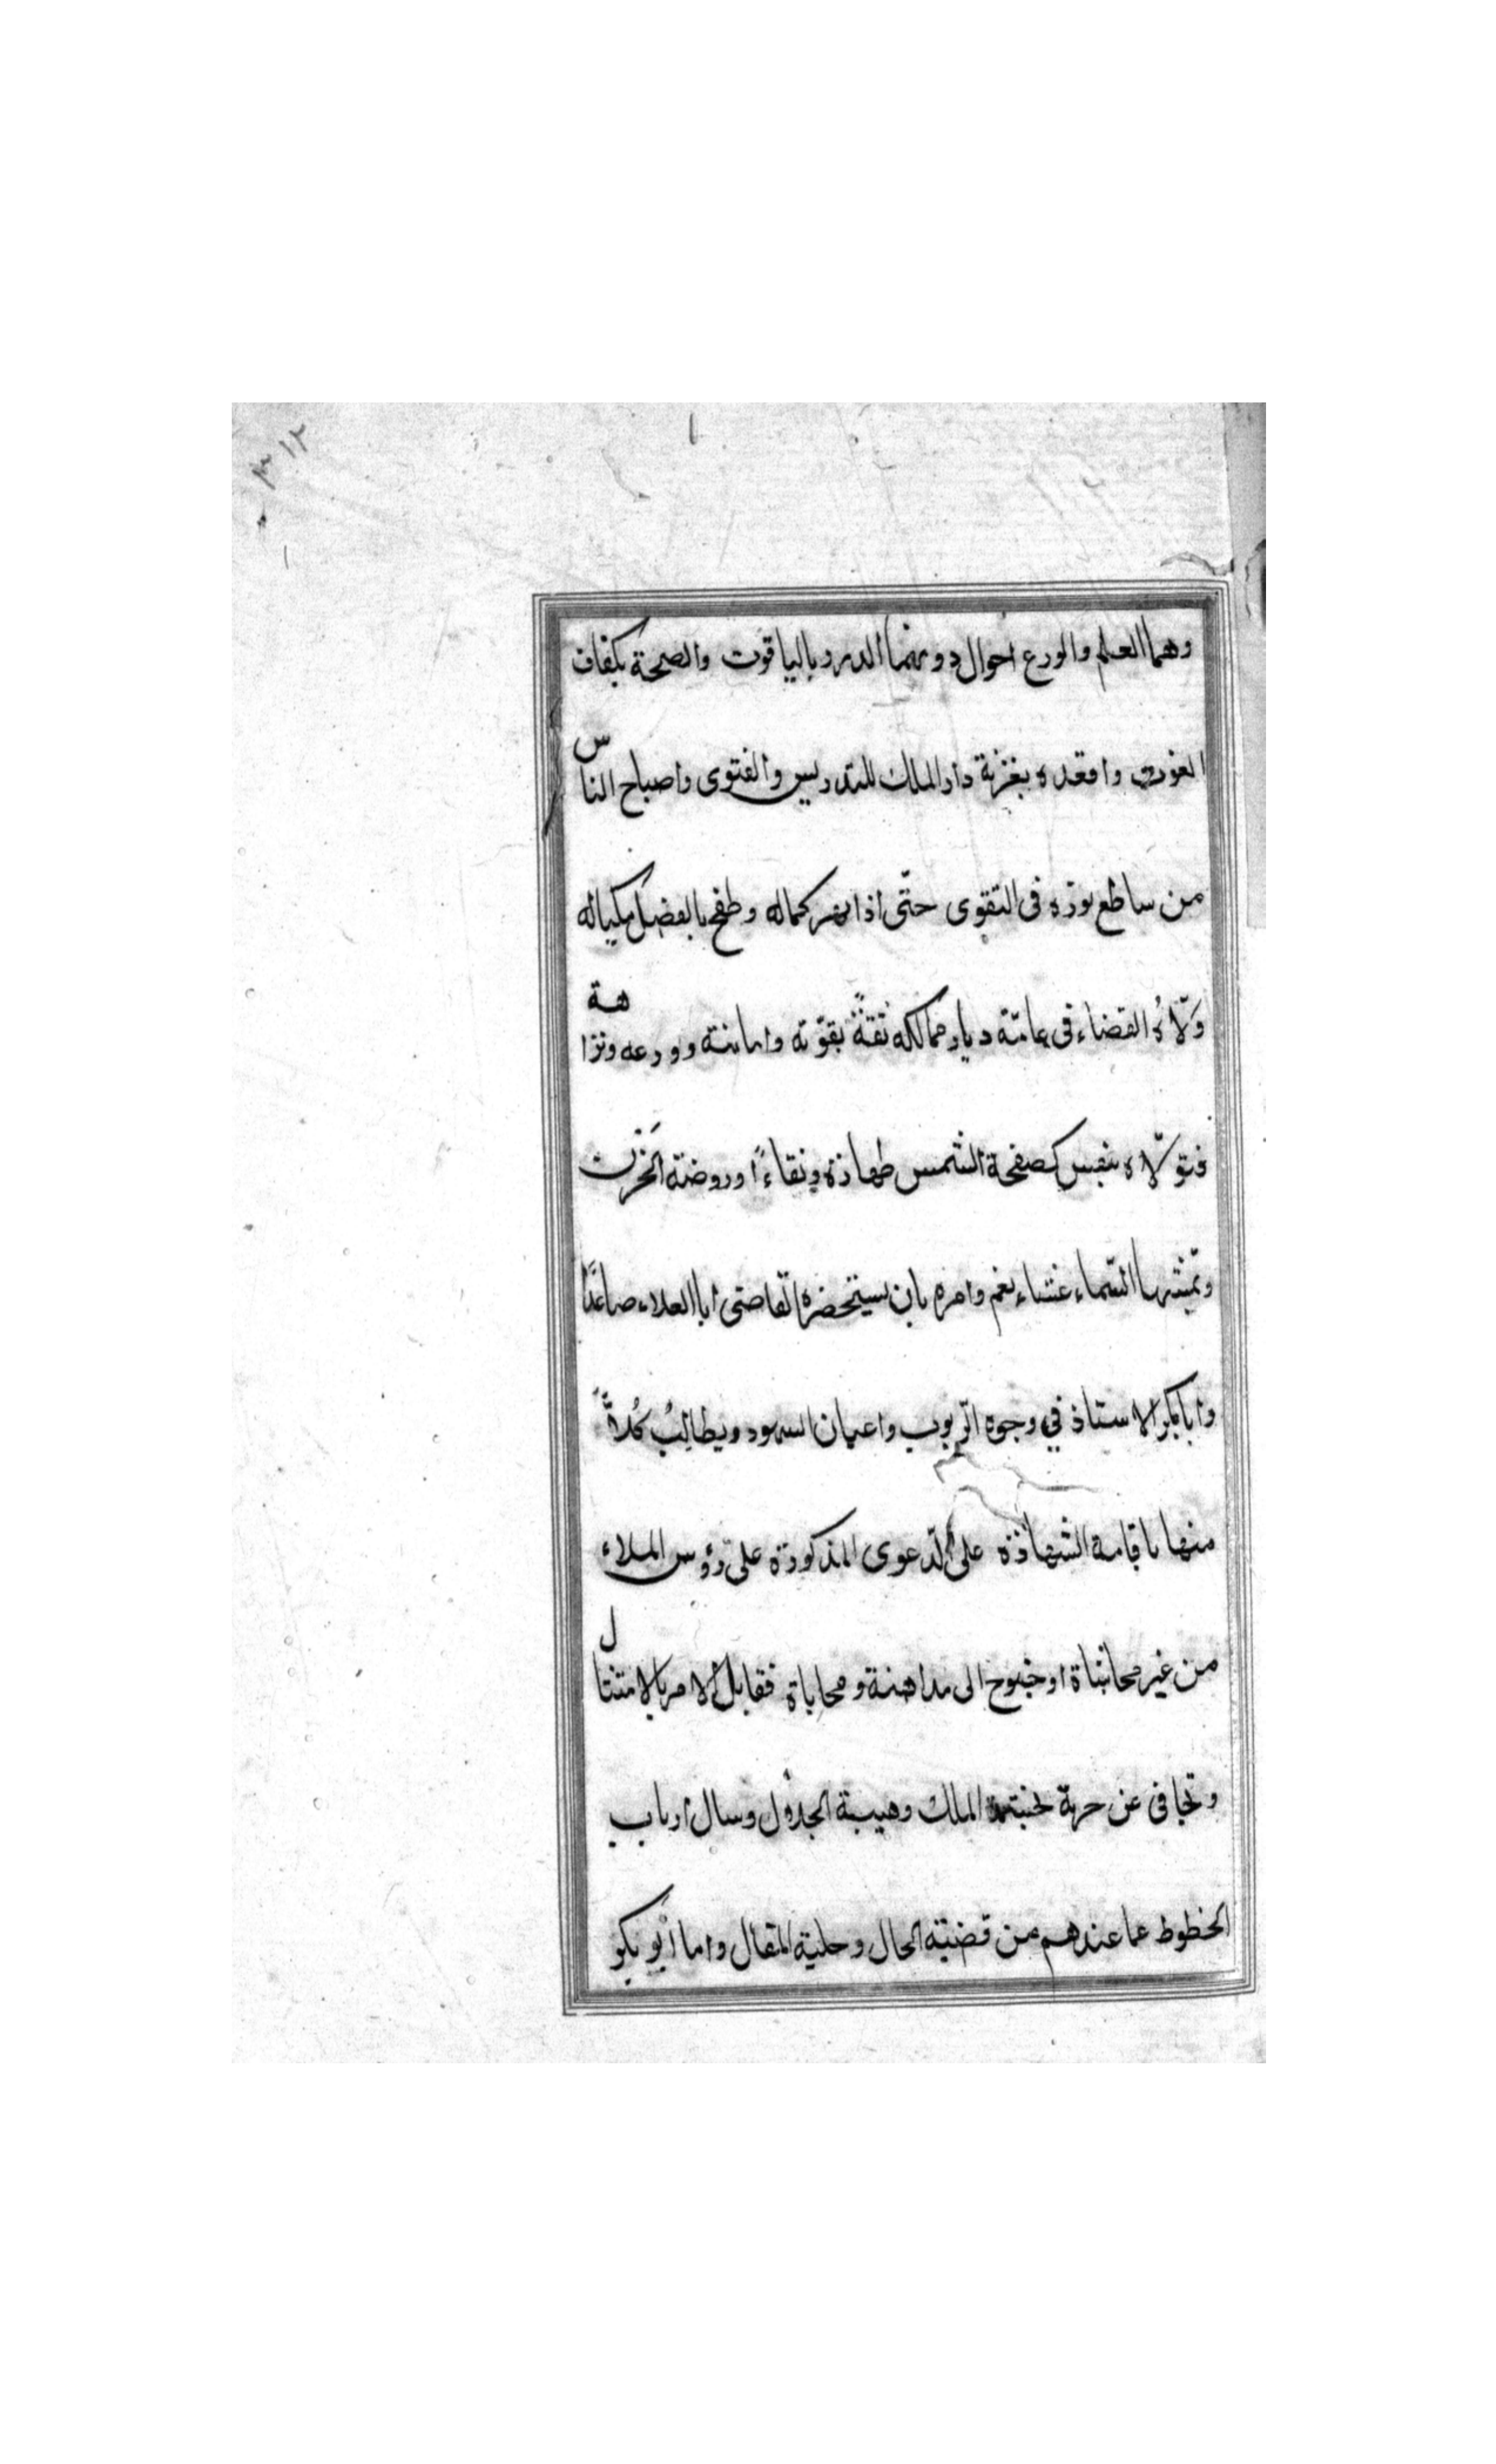 ٣١٢
وهما العلم والورع احوال دونهما الدر وبالياقوت والصحة بكفاف
العوذى واقعده بغزنة دار الملك للتدريس والفتوى واصباح الناس
من ساطع نوره فى التقوى حتّى اذا كماله وطفح بالفضل مكياله
وَلّاهُ القضاء فى عامّة ديار ممالكه ثقةً بقوّته وامانته وورعه ونزاهة
فتوّلاه بنفس كصفحة الشمس طهارة ونقاءً او روضة الحَزْن
السّماء غشاء نعم وامره بان يستحضره القاضى ابا العلاء صاعدًا
وابا بكر الاستاذ في وجوه واعيان الشهود ويطالِبُ كُلاًّ
منها باقامة الشهادة على الدّعوى المذكورة على رؤس الملاء
من غير محاشاة او جنوح الى مداهنة ومحاباة فقابل الامر بالامتثال
وتجافى عن حرمة الملك وهيبة الجلال وسال ارباب
الخطوط عما عندهم من قضيّة الحال وحلية المقال واما ابو بكر